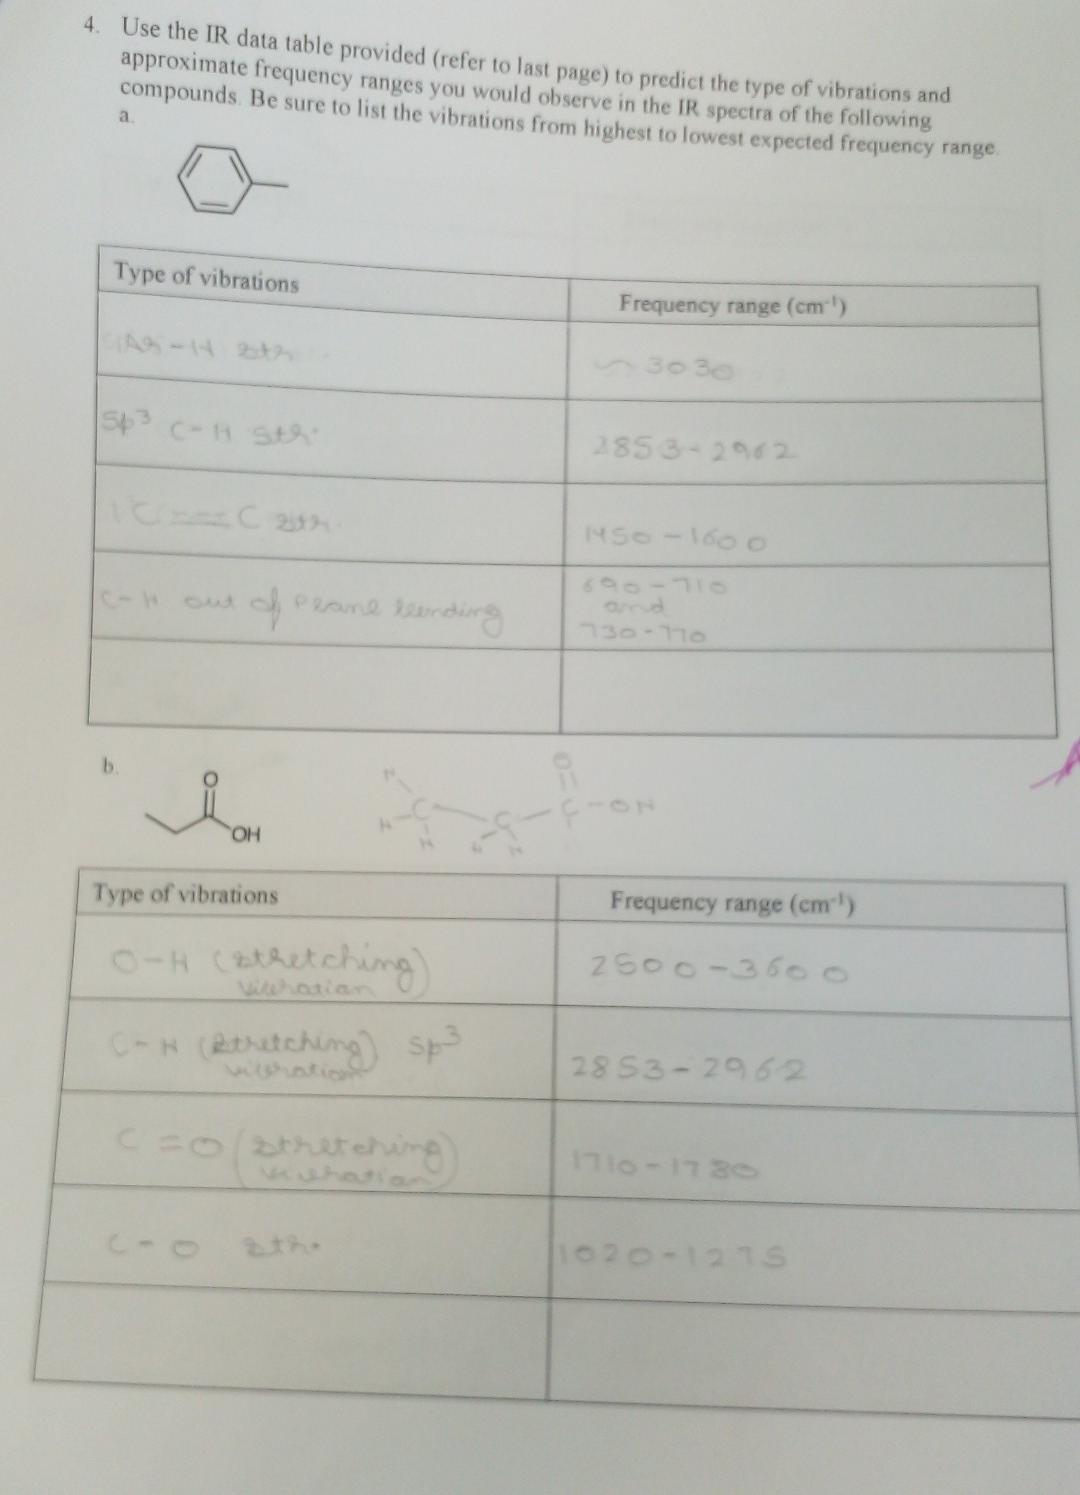 4. Use the IR data table provided (refer to last page) to predict the type of vibrations and
approximate frequency ranges you would observe in the IR spectra of the following
compounds. Be sure to list the vibrations from highest to lowest expected frequency range.
a.
Type of vibrations
Frequency range (cm⁻¹)
Ar-H str
~ 3030
Sp³ C-H str.
2853-2962
C=C str.
1450-1600
C-H out of Plane bending
690-710
and
730-770
b.
O
OH
H
O
H-C-C-C-OH
H H H
Type of vibrations
Frequency range (cm⁻¹)
O-H (stretching)
vibration
2500-3600
C-H (stretching) sp³
vibration
2853-2962
C=O (stretching)
vibration
1710-1780
C-O str.
1020-1275